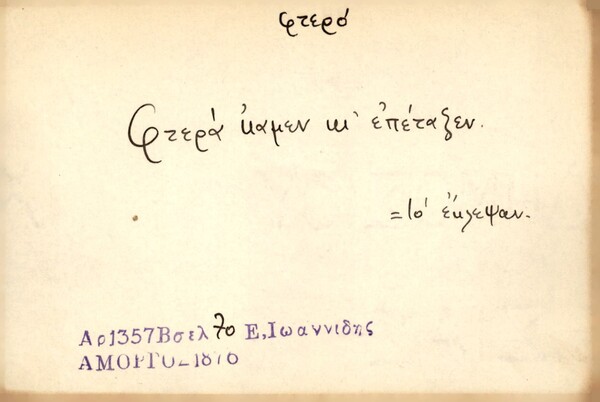 φτερό
Φτερά ἔκαμεν κι' ἐπέταξεν.
= Τό' ἔκλεψαν.
Αρ1357Βσελ 70 Ε,Ιωαννιδης
ΑΜΟΡΓΟΣ 1876